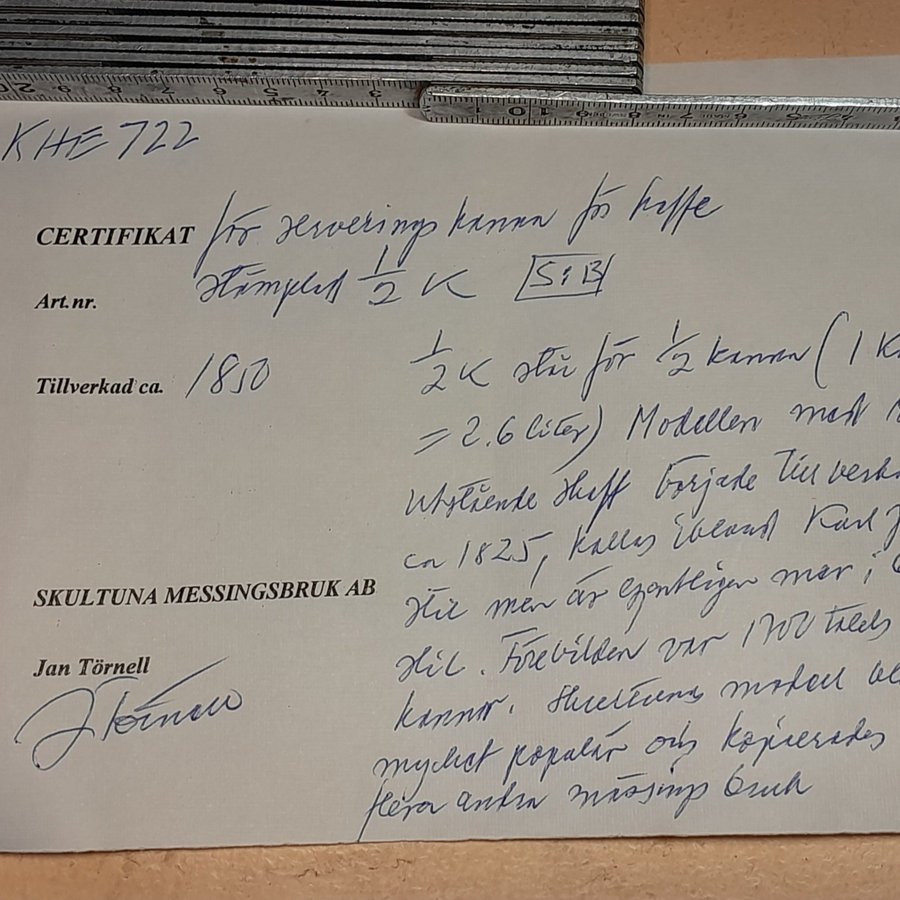 KHE 722
CERTIFIKAT för serverings kanna för kaffe
Art.nr. stämplad 1/2 K SiB
Tillverkad ca. 1850
1/2 K står för 1/2 kanna (1 K
= 2.6 liter) Modellen med
utstående skaft började tillverk
ca 1825, kallas ibland Karl J
stil men är egentligen mer i
stil. Förebilden var 1700 talets
kannor. Skultunas modell
mycket populär och kopierades
flera andra mässings bruk
SKULTUNA MESSINGSBRUK AB
Jan Törnell
J Törnell